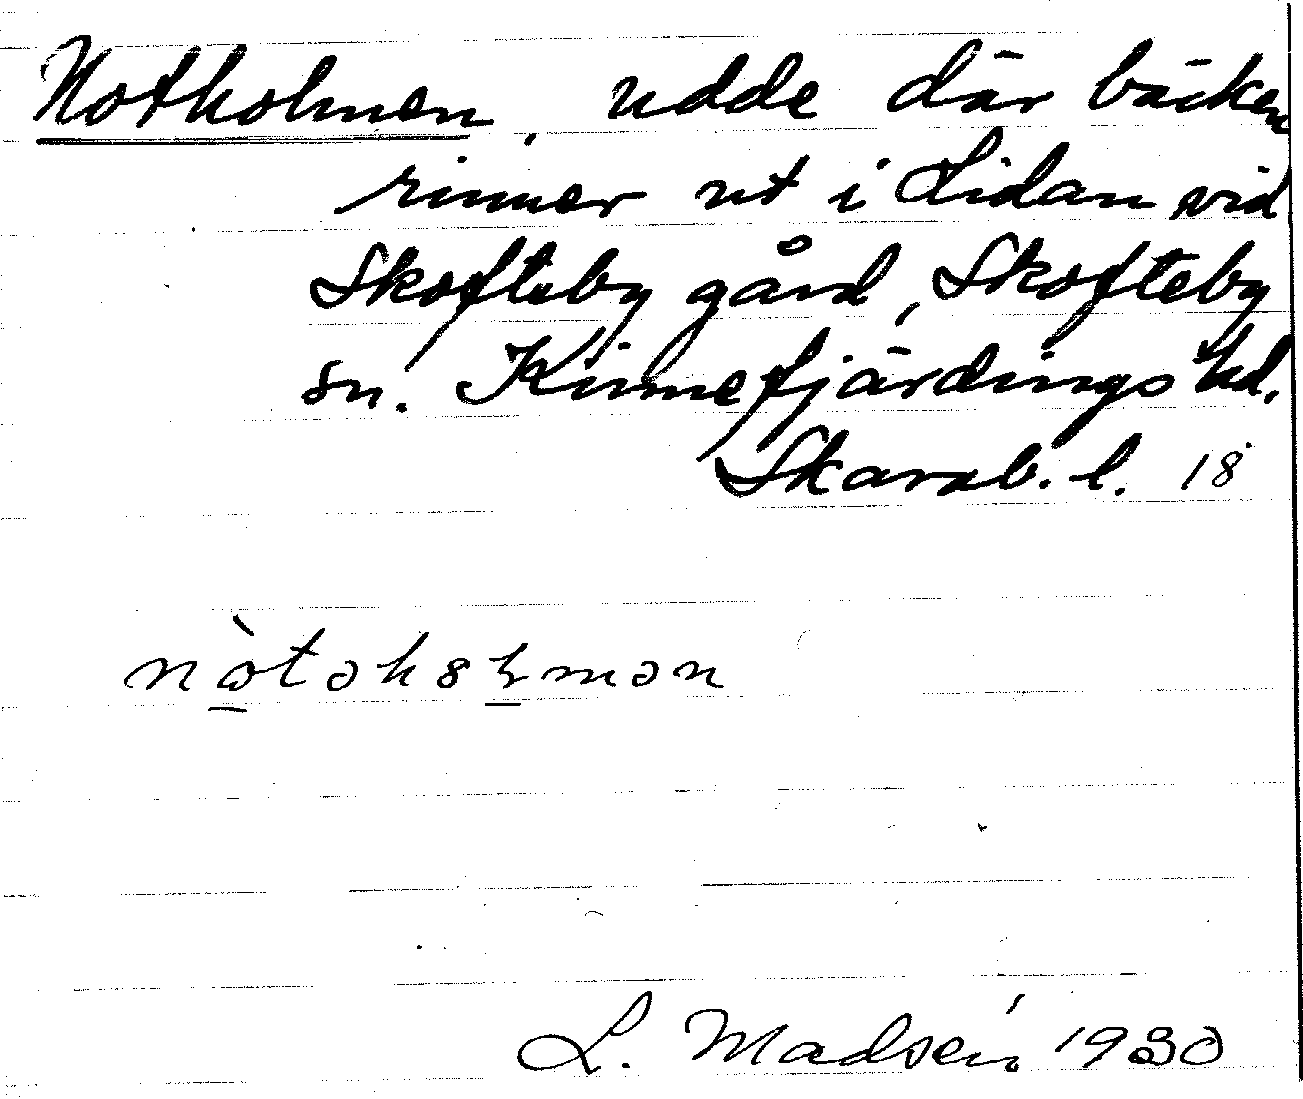 Notholmen, udde där bäcken
rinner ut i Lidan vid
Skofteby gård, Skofteby
sn. Kinnefjärdings hd.
Skarab. l. 18
L. Madsén. 1930